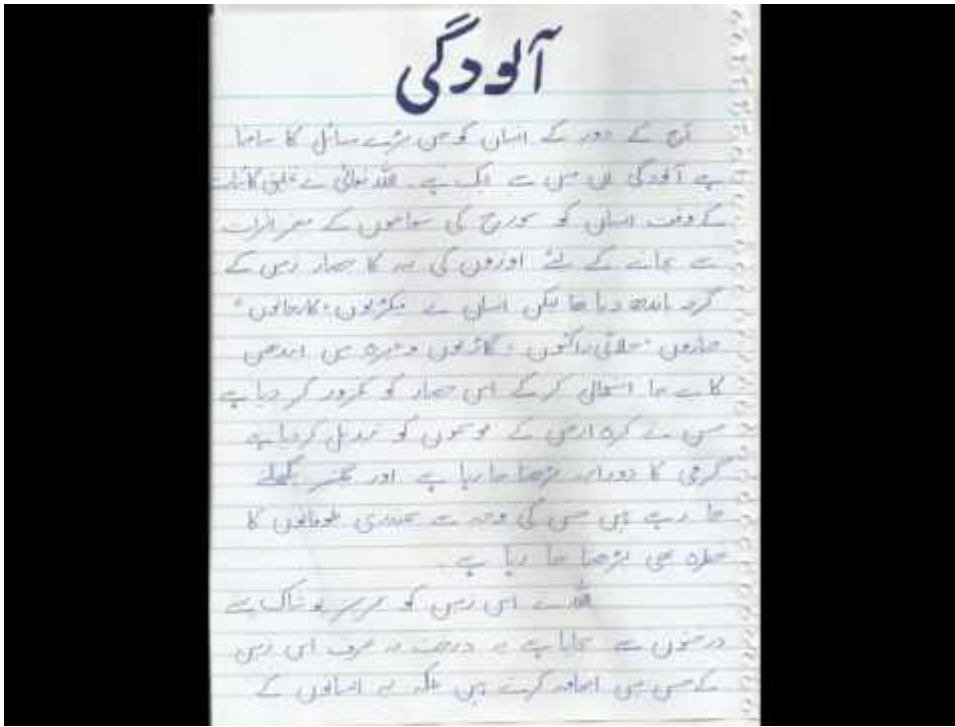 آلودگی
آج کے دور کے انسان کو جن بڑے مسائل کا سامنا
ہے آلودگی ان میں سے ایک ہے۔ اللہ تعالیٰ نے تخلیق کائنات
کے وقت انسان کو سورج کی شعاعوں کے مضر اثرات
سے بچانے کے لئے اوزون کی تہہ کا حصار زمین کے
گرد باندھ دیا تھا لیکن انسان نے فیکٹریوں، کارخانوں،
جہازوں، خلائی راکٹوں، گاڑیوں وغیرہ میں ایندھن
کا بے جا استعمال کر کے اس حصار کو کمزور کر دیا ہے
جس نے کرہ ارض کے موسموں کو تبدیل کر دیا ہے
گرمی کا دورانیہ بڑھتا جا رہا ہے اور گلیشیر پگھلتے
جا رہے ہیں جس کی وجہ سے سمندری طوفانوں کا
خطرہ بھی بڑھتا جا رہا ہے۔
اللہ نے اس زمین کو سرسبز پوشاک یعنی
درختوں سے سجایا ہے یہ درخت نہ صرف اس زمین
کے حسن میں اضافہ کرتے ہیں بلکہ یہ انسانوں کے